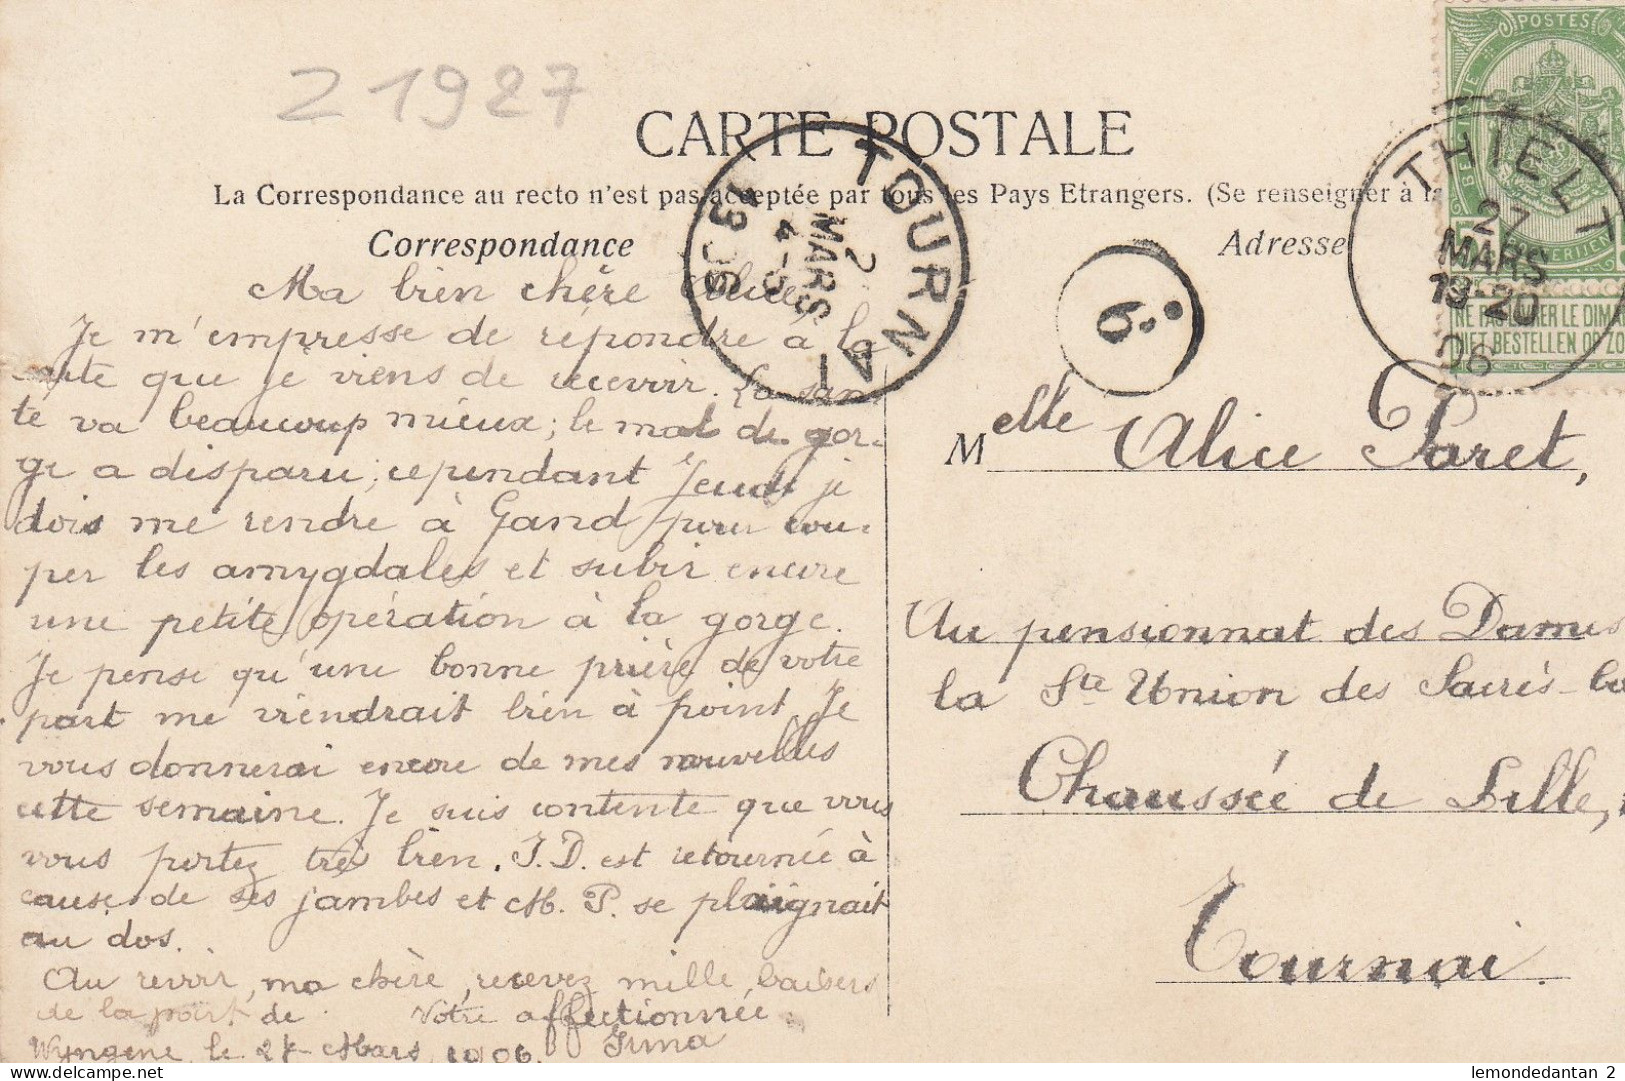 Z1927
CARTE POSTALE
La Correspondance au recto n'est pas acceptée par tous les Pays Etrangers. (Se renseigner à la
Correspondance
Adresse
POSTES
BELGIQUE
THIELT
27
MARS
19-20
06
NE PAS LIVRER LE DIMA
NIET BESTELLEN OP ZO
TOURNAI
2
MARS
4-5
1906
6
Ma bien chère Alice,
Je m'empresse de répondre à la
carte que je viens de recevoir. La san
té va beaucoup mieux; le mal de gor-
ge a disparu; cependant Jeudi je
dois me rendre à Gand pour cou-
per les amygdales et subir encore
une petite opération à la gorge.
Je pense qu'une bonne prière de votre
part me viendrait bien à point. Je
vous donnerai encore de mes nouvelles
cette semaine. Je suis contente que vous
vous portez très bien. J.D. est retournée à
cause de ses jambes et M. P. se plaignait
au dos.
Au revoir, ma chère, recevez mille baisers
de la part de Votre affectionnée
Wyngene, le 27 Mars 1906. Irma
Melle Alice Paret,
Au pensionnat des Dames
la Ste Union des Sacrés-Co
Chaussée de Lille,
Tournai.
lemondedantan 2